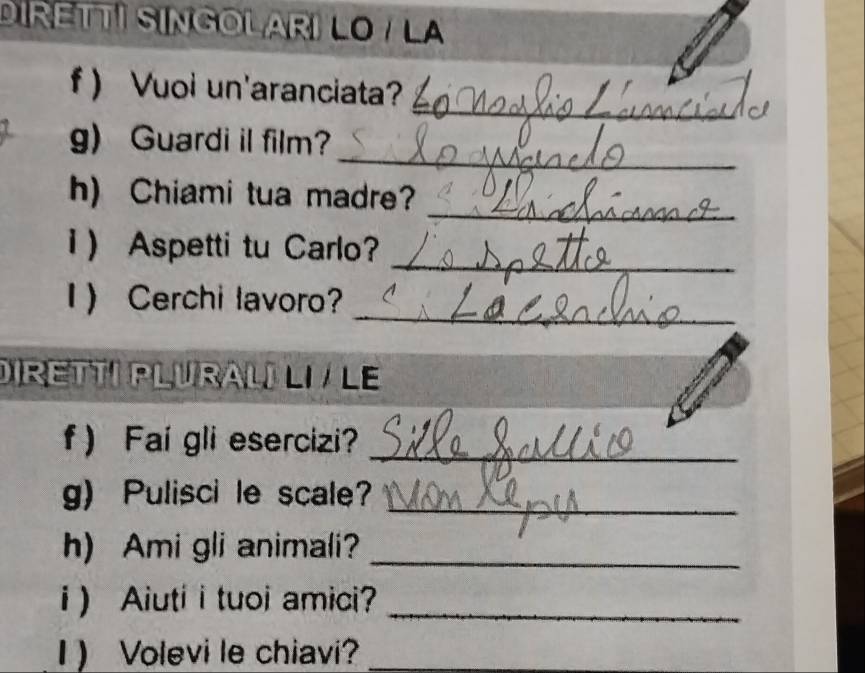 DIRETTI SINGOLARI LO / LA
f ) Vuoi un'aranciata? Lo voglio L'amciata
g) Guardi il film? Si lo guando
h) Chiami tua madre? Si La ichiamo
i ) Aspetti tu Carlo? Lo spetto
l ) Cerchi lavoro? Si Lo cenchio
DIRETTI PLURALI LI / LE
f ) Fai gli esercizi? Si le
g) Pulisci le scale? Non le pu
h) Ami gli animali?
i ) Aiuti i tuoi amici?
l ) Volevi le chiavi?